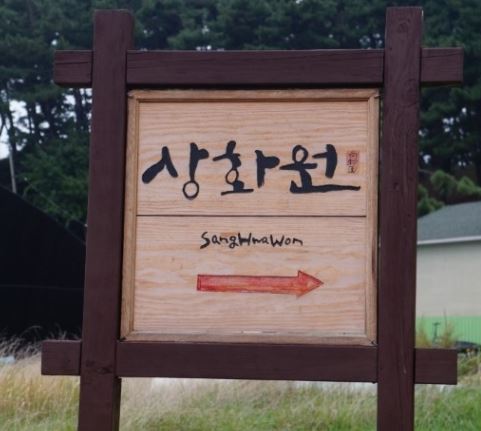 상화원
SangHwaWon